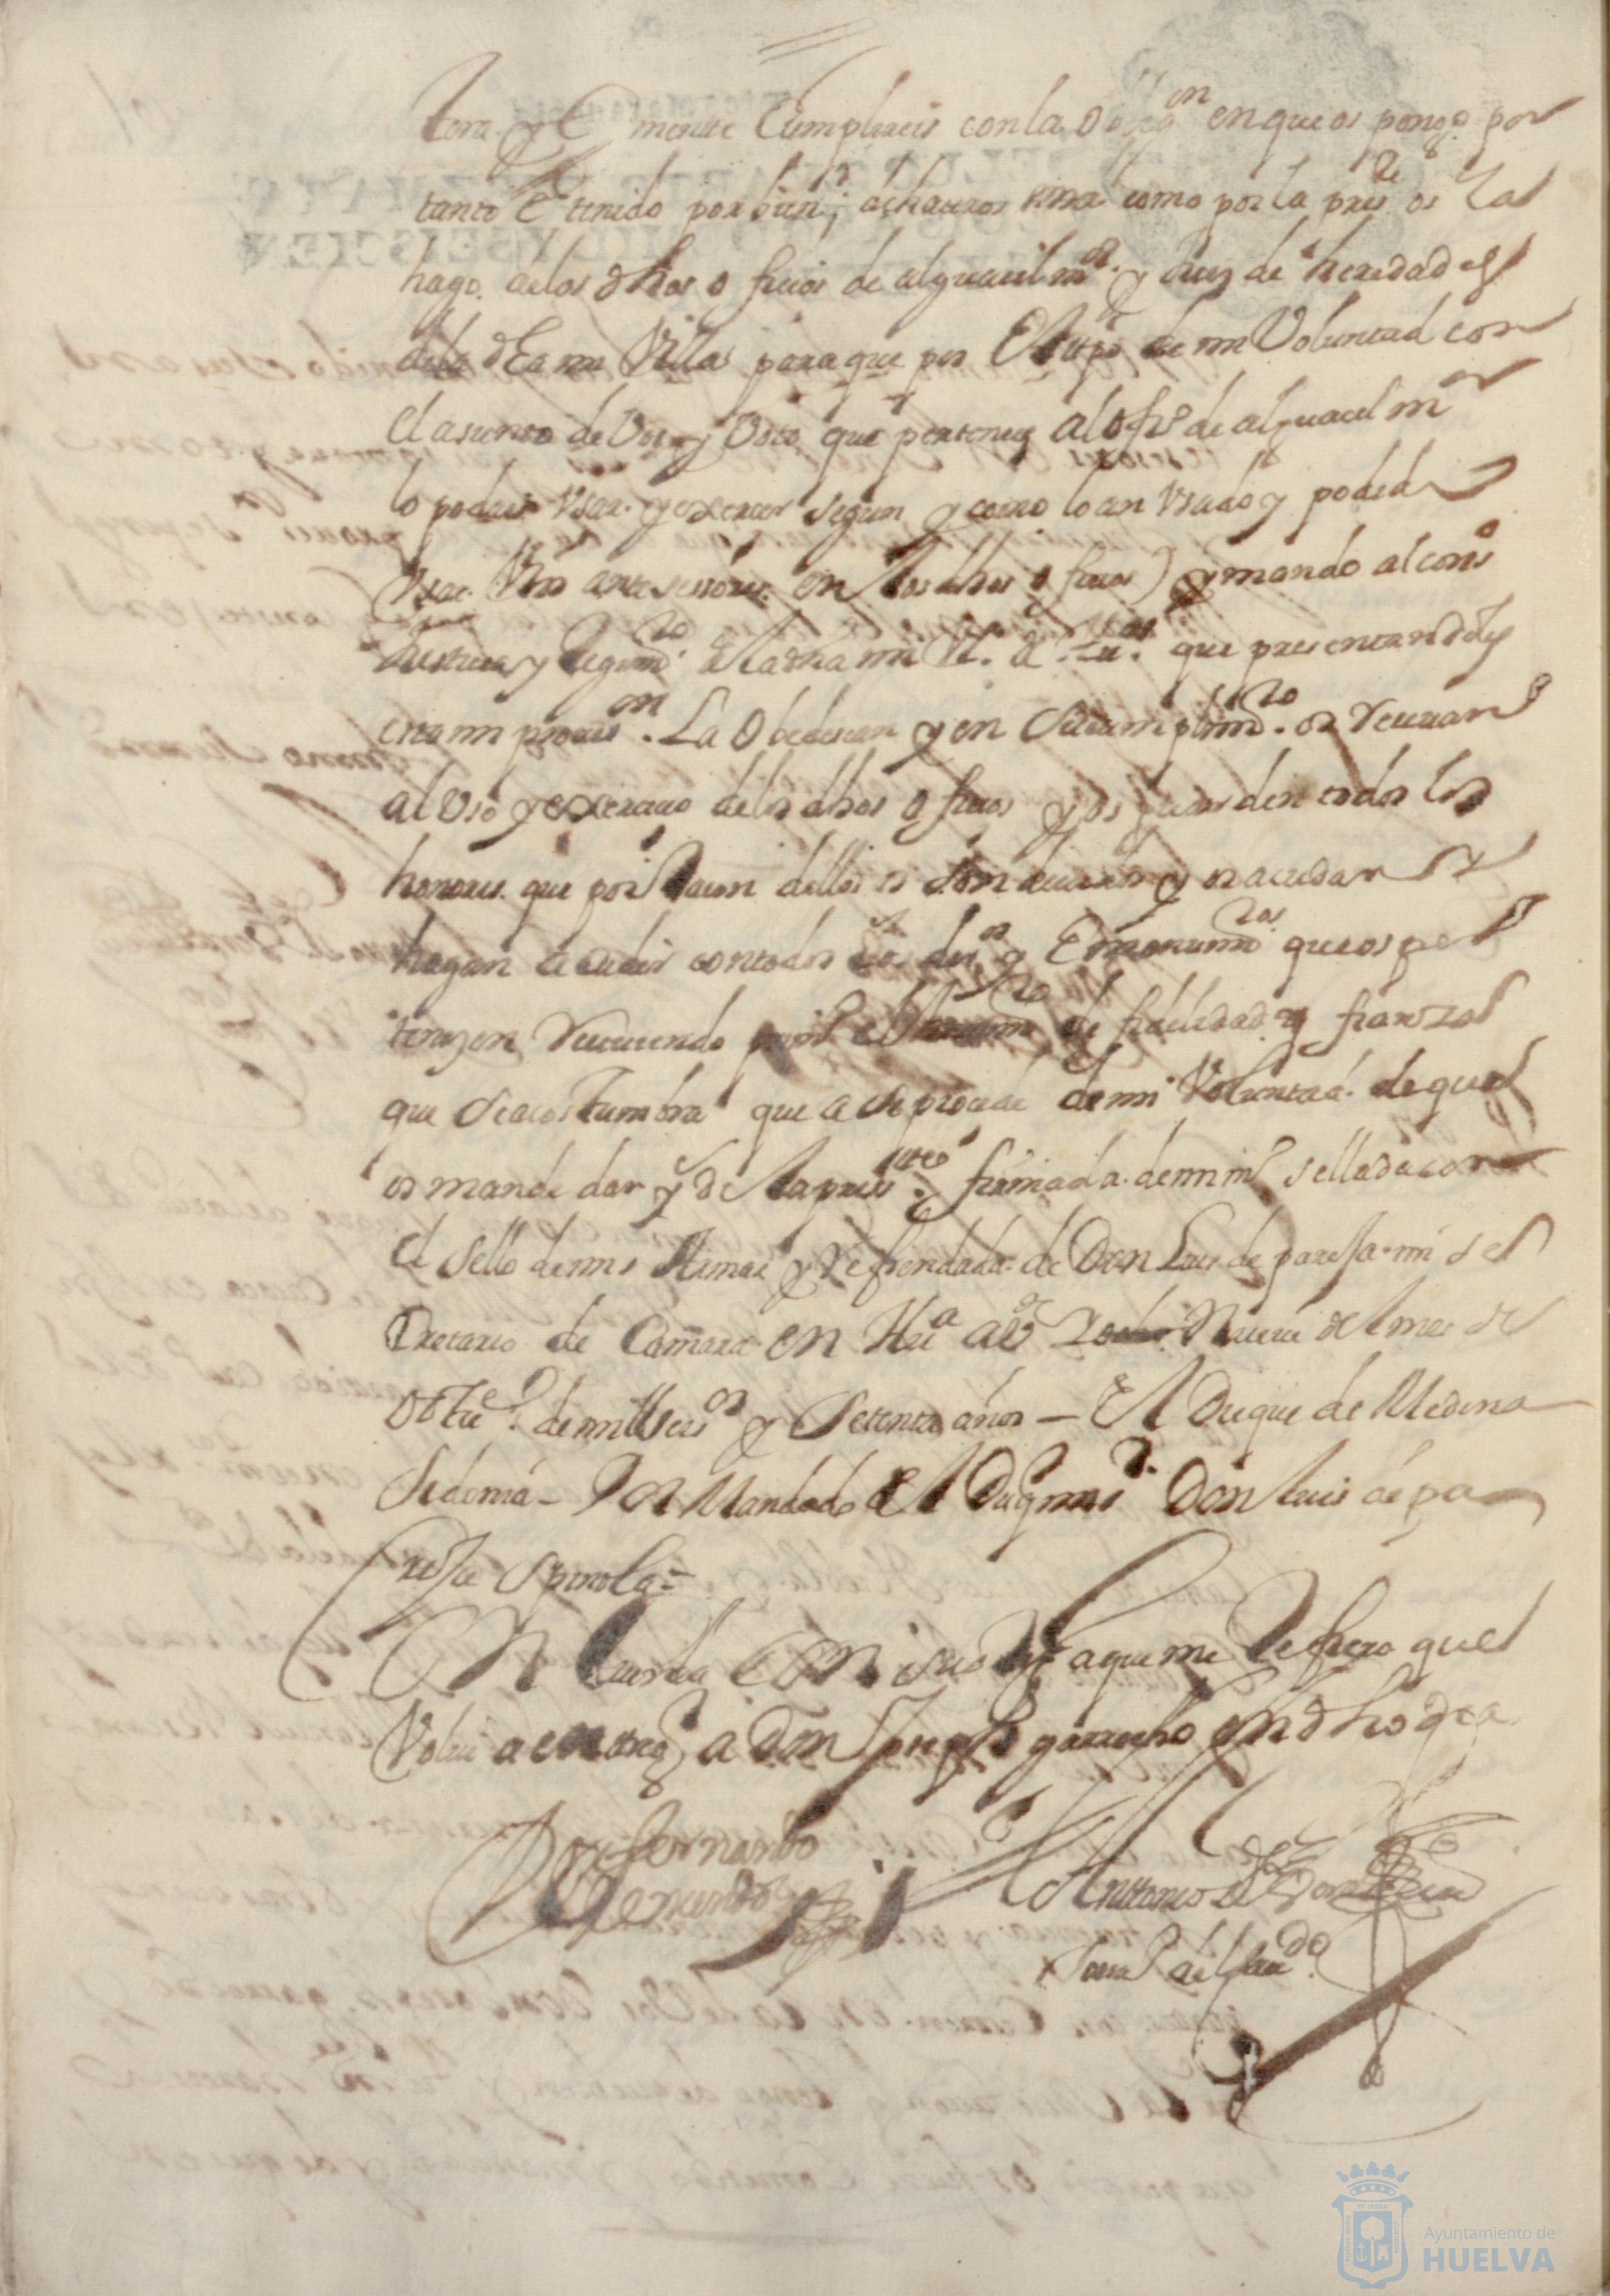 tera y e mente Cumplireis con la oblig.on en que os pongo. por
tanto E tenido por bien, de haceros mrd. como por la press.te os la
hago. de los dhos oficios de alguacil m.or y Juez de heredades
de la dha mi Villa para que por El tpo de mi Voluntad con
el asiento de Voz y Voto que pertenece al ofi.o de alguacil m.or
lo podais Usar. y exercer segun y como lo an Usado y podido
Usar. Vros antesesores en los dhos oficios) y mando al cons.o
Justicia y Regim.to de la dha mi V.a de Hu.a que presentandoles
esta mi provis.on. La Obedescan y en Su cumplim.to. os Reciuan
al Uso y exercicio de los dhos oficios y os guarden todos los
honores. que por Raçon dellos os son deuidos y os acudan y
hagan acudir con todos los der.os y Emolumen.tos que os per
tenezen Reciuiendo prim.o el Juram.to de fidelidad y fianzas
que Se acostumbra que asi procede de mi Voluntad. de que
os mande dar y di La press.te firmada. de mi m.o sellada con
el sello de mis Armas y Refrendada. de Don Luis de parexa. mi se
Cretario de Camara en Hu.a a Nueue del mes de
Otu.e de mill seis.os y Setenta años — El Duque de Medina
Sidonia — Por Mandado de El Duq mi s.r Don Luis de pa
rexa Spinola =
Con Cuerda con su Orig.l a que me Refiero que
Volui a entreg a Don Joseph garrocho en dho dia
Don fernando
Antonio de
Scriu.o de Cau.do
Ayuntamiento de
HUELVA